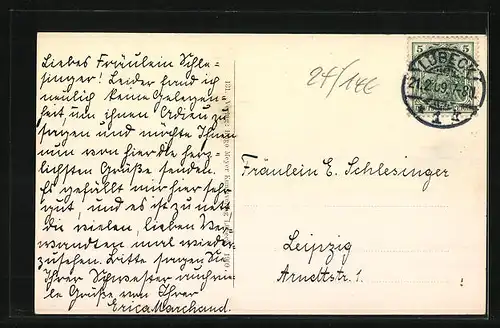 Liebes Fräulein Schle-
singer! Leider fand ich
neulich keine Gelegen-
heit, um ihnen Adieu zu
sagen und möchte Ihnen
nun von hier die herz-
lichsten Grüße senden.
Es gefällt mir hier sehr
gut, und es ist zu nett
die vielen, lieben Ver-
wandten mal wieder
zusehen. Bitte sagen Sie
Ihrer Schwester auch vie-
le Grüße von Ihrer
Erica Marchand.
24/1
5 5
LÜBECK
21.2.09.7-8N.
1
Fräulein E. Schlesinger
Leipzig
Arndtstr. 1.